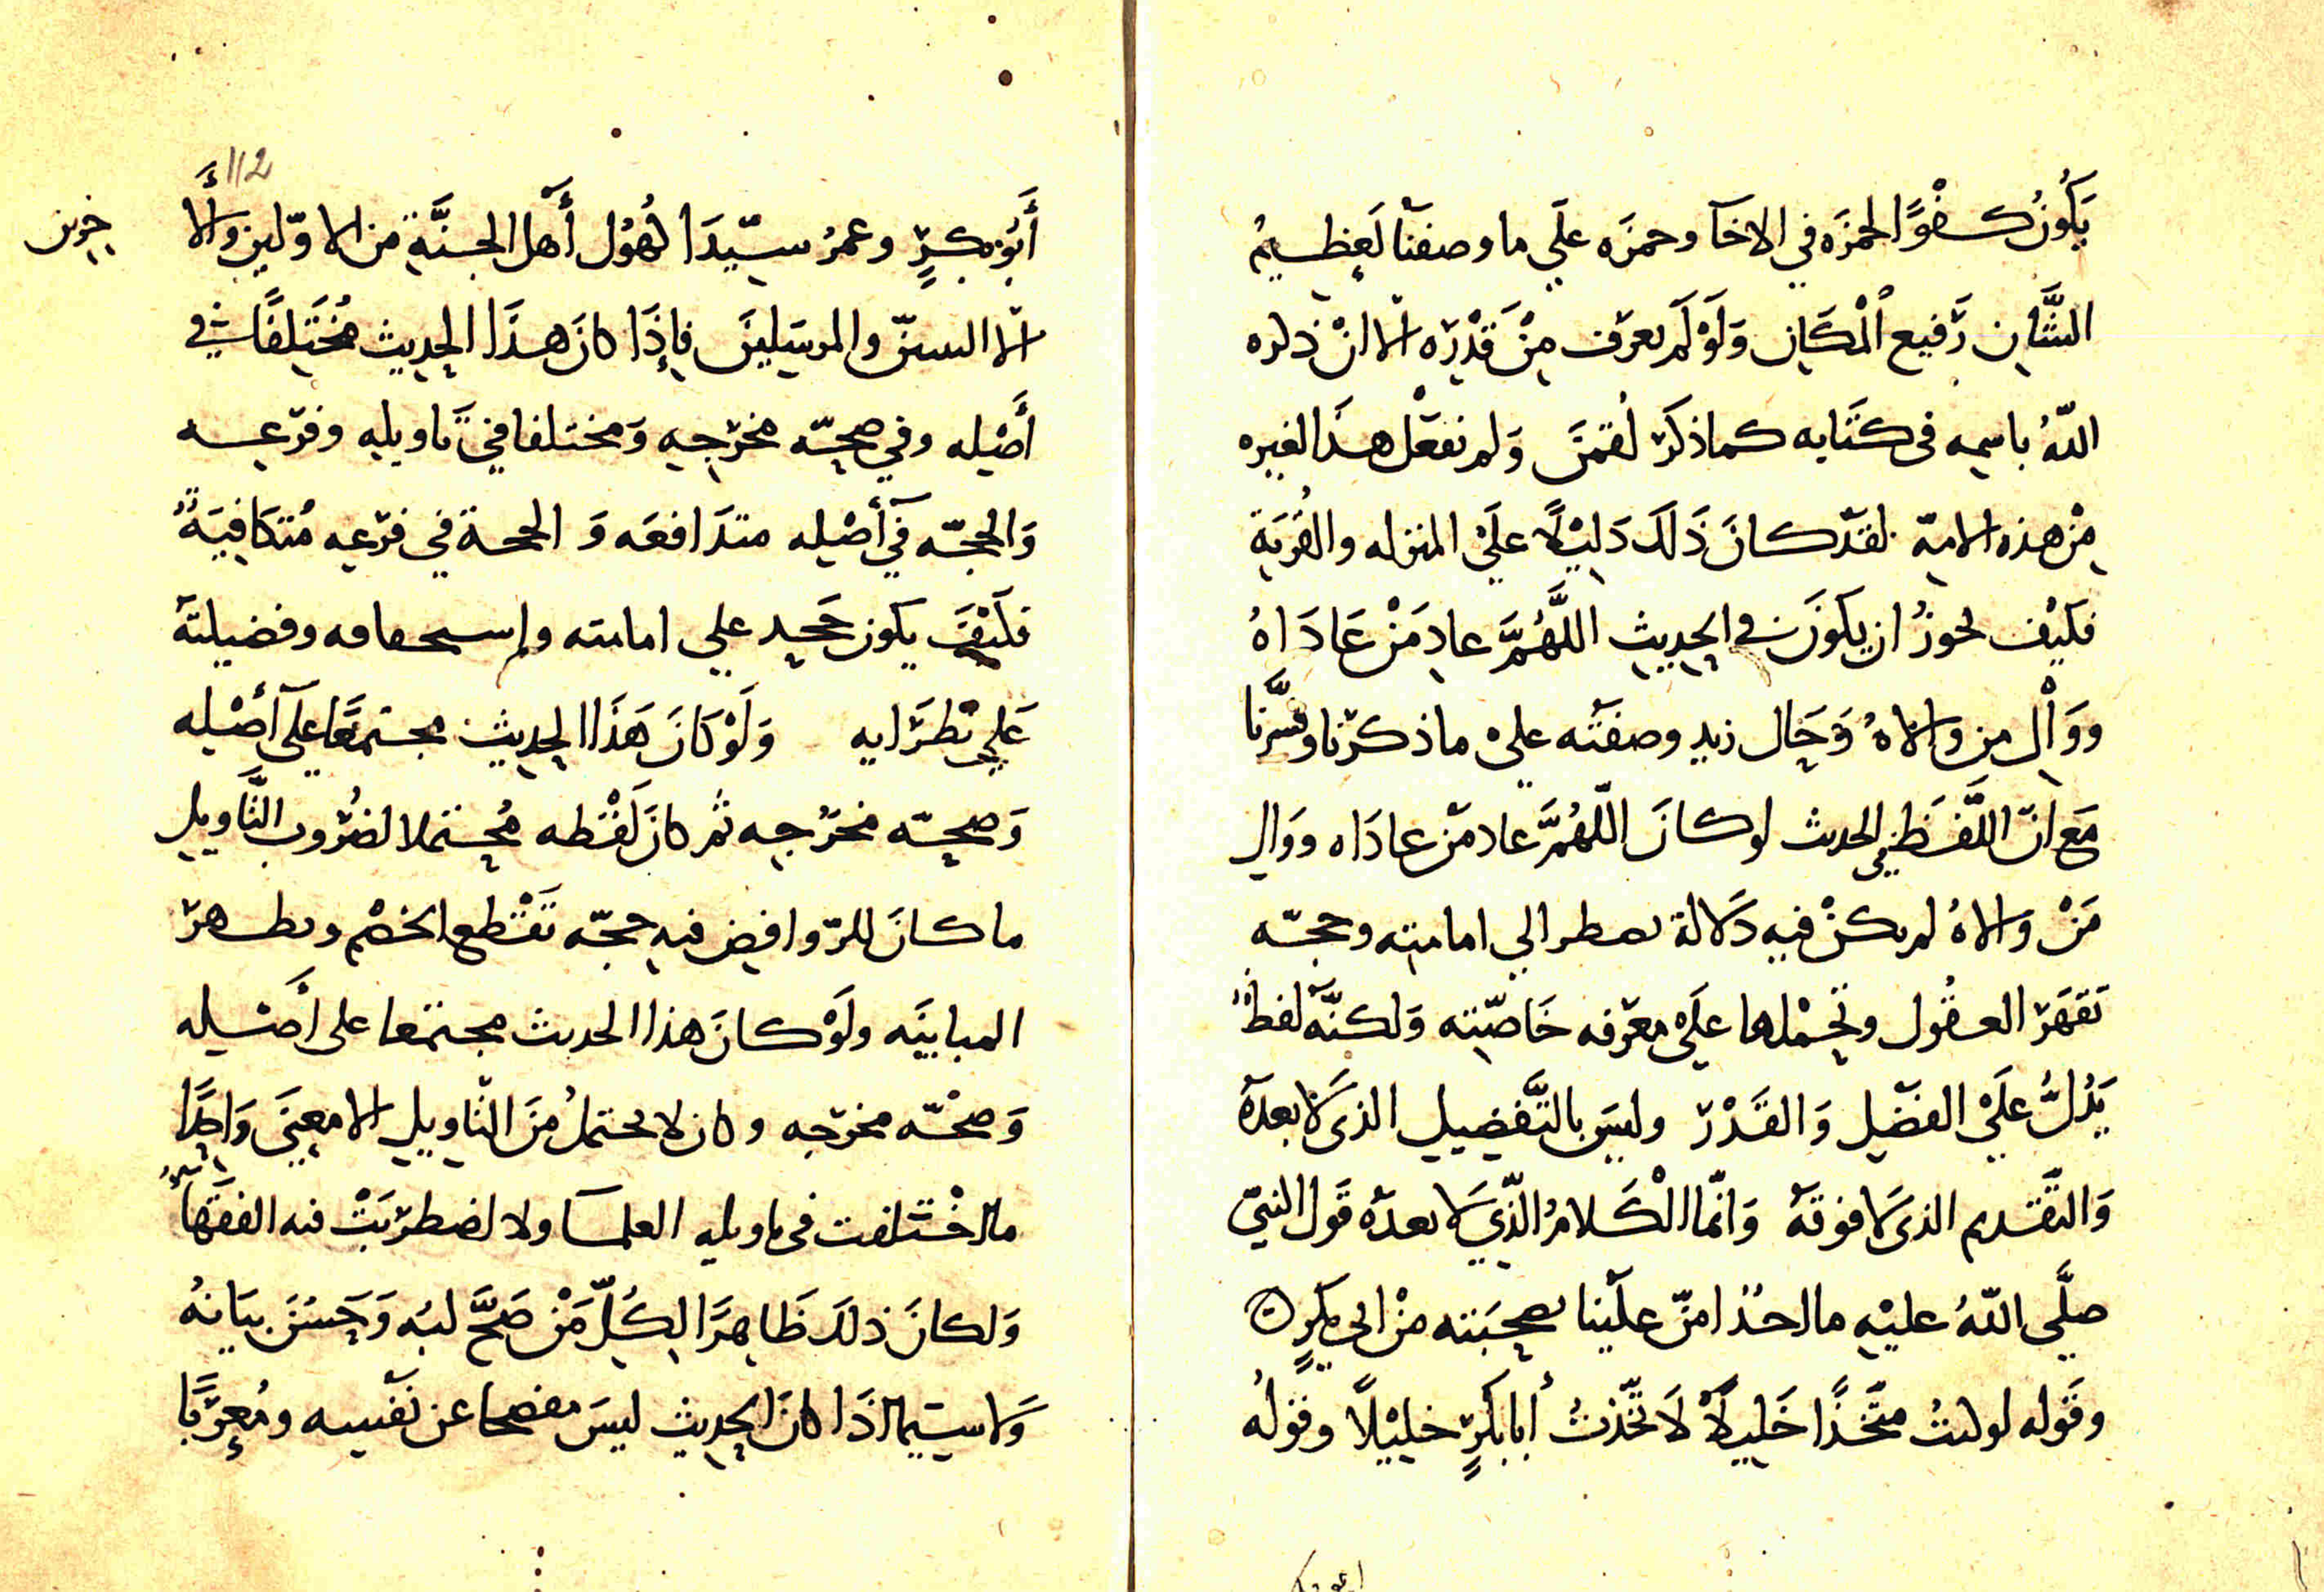 يَكُونُ كفْوًا لحمزَه في الاخآ وحمزَه علَي ما وصفنَا لَعظيمُ
الشَّان رَفيع الْمكَان وَلَوْ لَم يعرَف مِنْ قَدْرَه الا انْ ذكره
اللّهُ باسمه في كتَابه كما ذكَرَ لُقمنَ وَلم نفعَل هذَا لغيره
مِنْ هذه الامّة لقدْ كانَ ذَلكَ دَليْلًا علَيْ المنزله والقُربَة
فكَيْف يجوزُ ان يكَونَ في الحديث اللَّهُمَّ عادِ مَنْ عَادَاهُ
ووَالِ من والاهُ وَحَال زيد وصفَتَه عليْ ما ذكرْنا وفسَّرنا
مَع انّ اللَّفَظ في الحديث لو كانَ اللّهُمَّ عاد مَنْ عادَاه ووَالِ
مَنْ والاهُ لم يكنْ فيه دَلالة تضطر الي امامته وحجّه
تَقهَرَ العقُول وتَحْملها علَيْ معرَفه خَاصّته وَلكنَّه لفظٌ
يَدُلُّ علَيْ الفضْل وَالقَدْرَ وليسَ بالتَّفضيل الذي لَا بعدَهُ
وَالتَّقدم الذي لَا فوقهَ وَانّما الْكَلامُ الذّي لَا بعدَه قَول النبيّ
صلَّي اللّهُ عليْه ما احدٌ امنّ علَينا بصحبَته منْ ابي بكرٍ
وقَوله لو كنتُ متَّخذًا خَليلًا لَاتَّخذتُ أبا بكرٍ خليْلًا وقولُه
أَبُو بكرٍ وعمرُ سيّدَا كُهُول أَهل الجنَّةِ من الاوّلين والأَ
خرين
الا النبيّن والمرسَلينَ فإذَا كانَ هذَا الحديث مُختَلفًا في
أَصْله وفي صحّه مخرَجه وَمختلفا في تَاويله وفرَعه
وَالحجّه في أصْله متدَافعَه وَ الحجة في فرَعه مُتكَافيَةٌ
فكَيْفَ يكون حجه علي امامته وإستحقاقه وفضيلتَه
عَلي نُظَرَايه وَلَوْ كَانَ هَذَا الحديث مجتمعًا علَى أصْله
وَصحّه مخرَجه ثم كانَ لَفْظه مُحتملا لضُرُوب التَّاويل
ما كانَ للرّوافض فيه حجّه تَقْطع الخصْم وتظهرَ
المباينَه ولَوْ كانَ هذا الحديث مجتمَعا على أَصْله
وَصحّه مخرَجه وكان لا يحتملُ منَ التّاويل الا معنيَ وَاحدًا
ما اخْتلفت في تاويله العلمآ ولا اضطرَبَتْ فيه الفقَهآ
وَلكانَ ذلكَ ظَاهرًا لكُلّ مَنْ صَحَّ لبُه وَحَسُنَ بيَانهُ
وَلا سيّما اذَا كانَ الحديث ليسَ مفصحا عن نَفْسه ومُعرَّبًا